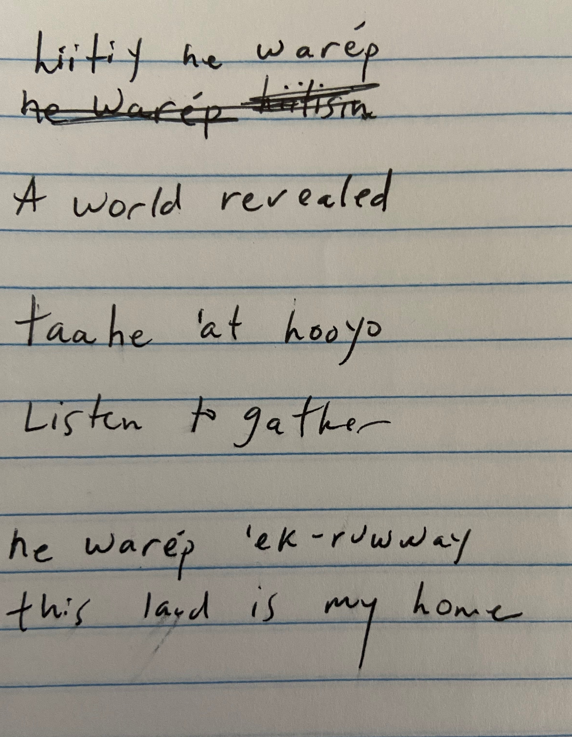 hiitiy he warép
he warép hiitisin
A world revealed
taahe 'at hooyo
Listen to gather
he warép 'ek-ruwway
this land is my home